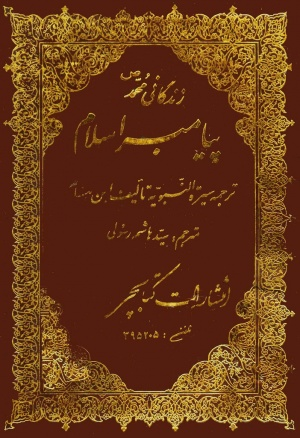 زندگانی محمد (ص)
پیامبر اسلام
ترجمه سیرة النبویه تألیف ابن هشام
مترجم: سید هاشم رسولی
انتشارات کتابچی
تلفن: ۳۹۵۲۰۵